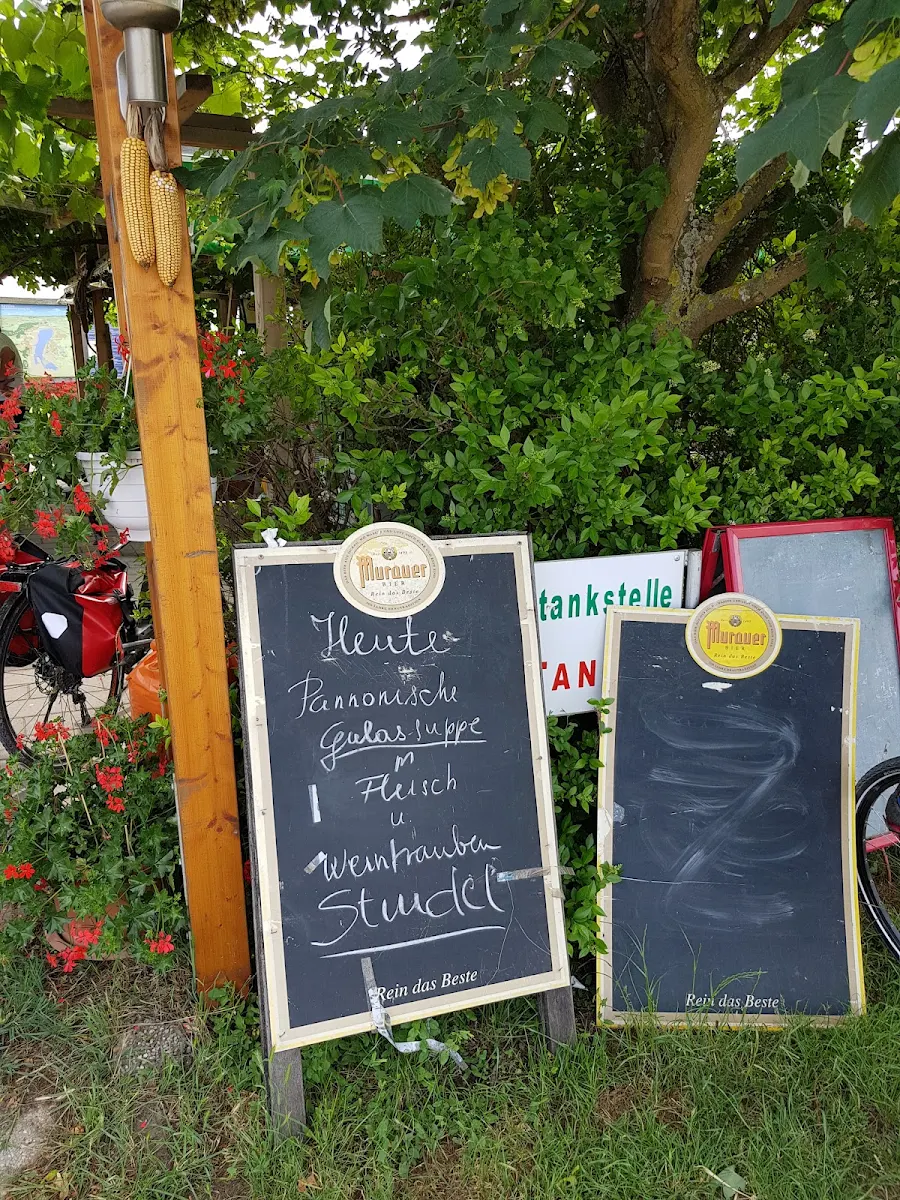 Murauer
BIER
Rein das Beste
Heute
Pannonische
Gulas-suppe
m
Fleisch
u.
Weintrauben
Strudel
Rein das Beste
tankstelle
TAN
Murauer
BIER
Rein das Beste
Rein das Beste